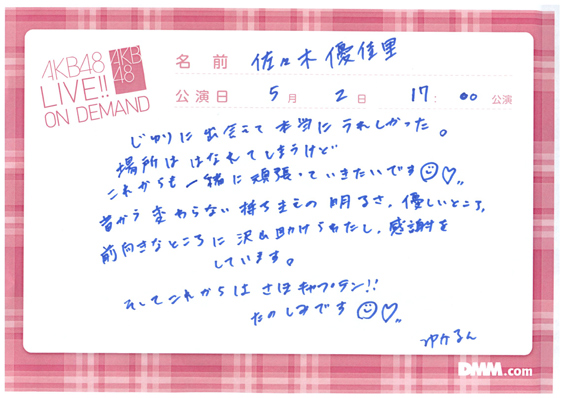 AKB48
LIVE!!
ON DEMAND
AKB
48
名前 佐々木優佳里
公演日 5月2日 17:00 公演
じゅりに出会えて本当にうれしかった。
場所ははなれてしまうけど
これからも一緒に頑張っていきたいです
昔から変わらない持ち主の明るさ、優しいところ、
前向きなところに沢山助けられたし、感謝を
しています。
そしてこれからは さほキャプテン!!
たのしみです
ゆかるん
DMM.com